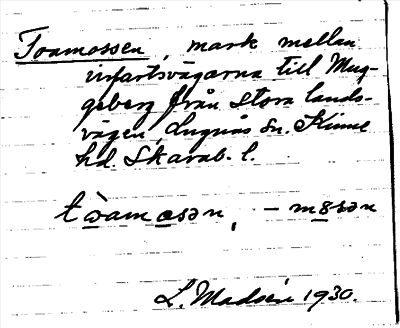 Toamossen, mark mellan
infartsvägarna till Mug-
geberg från stora lands-
vägen, Lugnås sn. Kinne
hd. Skarab. l.
tòamɷsən, -mɷsən
L. Madsén 1930.